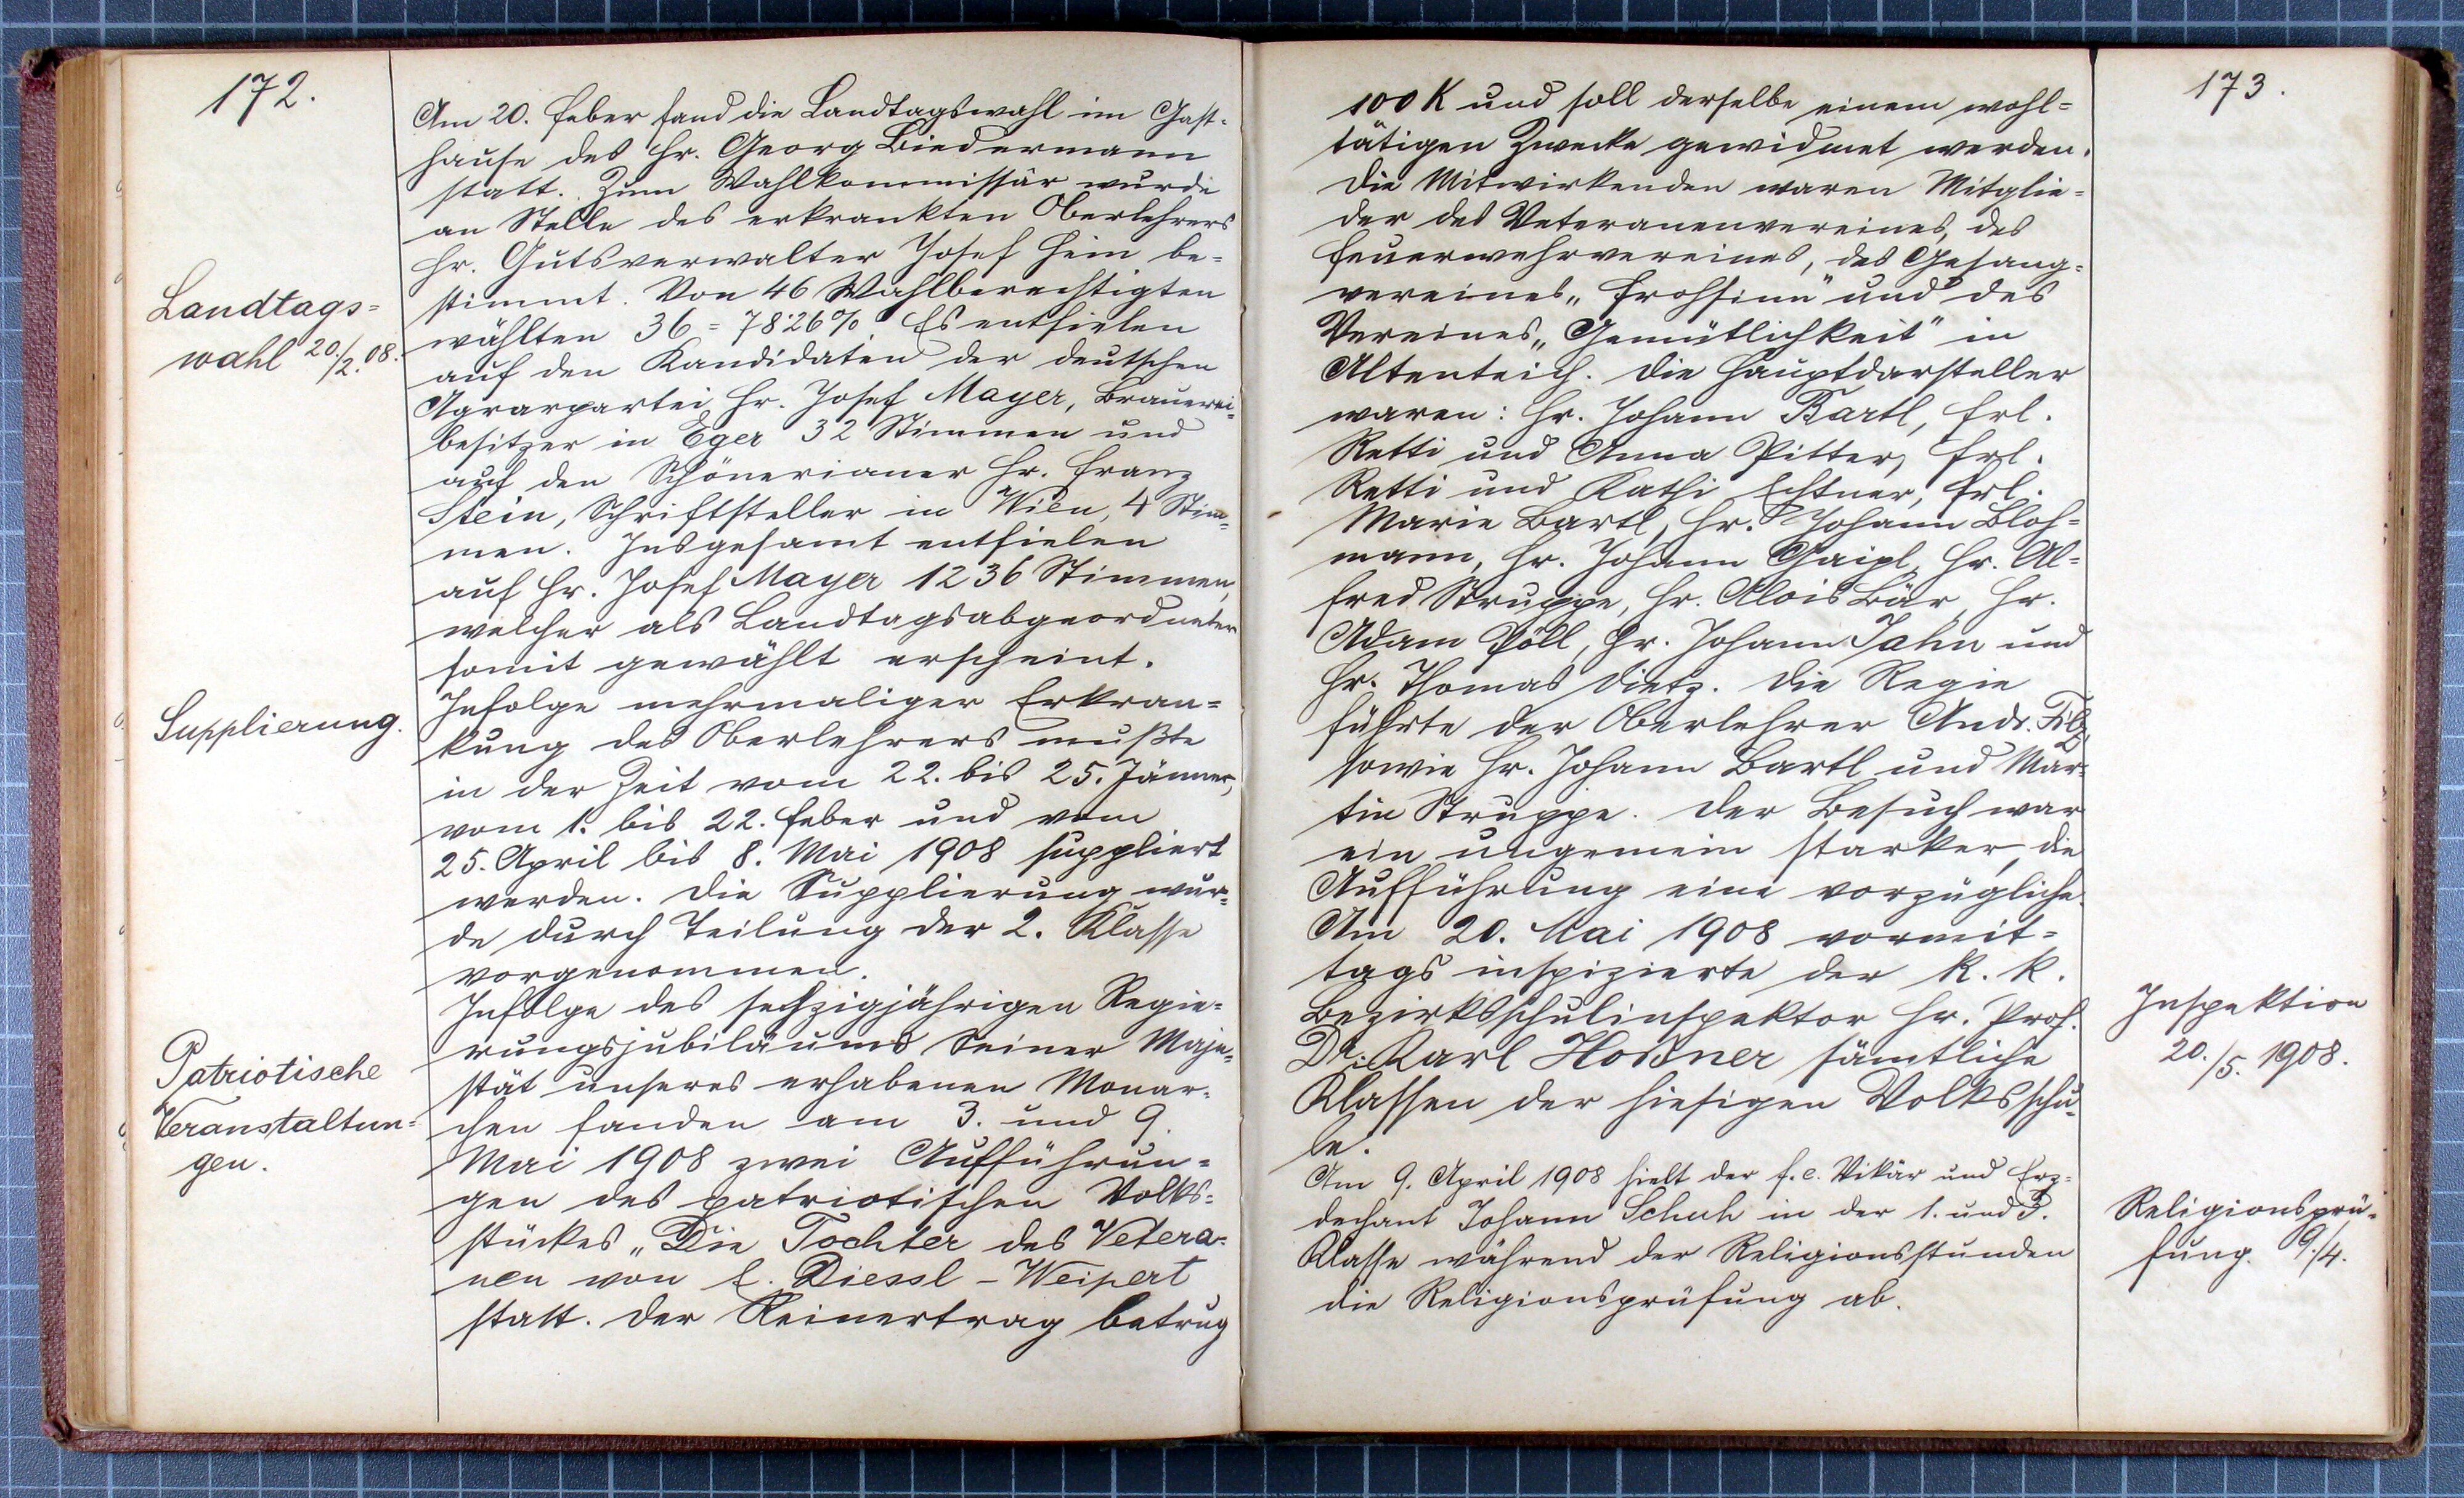 172.
Am 20. Feber fand die Landtagswahl im Gast-
hause des Hr. Georg Biedermann
statt. Zum Wahlkommissär wurde
an Stelle des erkrankten Oberlehrers
Hr. Gutsverwalter Josef Hein be-
stimmt. Von 46 Wahlberechtigten
wählten 36 = 78·26% Es entfielen
auf den Kandidaten der deutschen
Agrarpartei Hr. Josef Mayer, Brauerei-
besitzer in Eger 32 Stimmen und
auf den Schönerianer Hr. Franz
Stein, Schriftsteller in Wien, 4 Stim-
men. Insgesamt entfielen
auf Hr. Josef Mayer 1236 Stimmen,
welcher als Landtagsabgeordneter
somit gewählt erscheint.
Landtags=
wahl 20./2.08.
Infolge mehrmaliger Erkran=
kung des Oberlehrers mußte
in der Zeit vom 22. bis 25. Jänner,
vom 1. bis 22. Feber und vom
25. April bis 8. Mai 1908 suppliert
werden. Die Supplierung wur=
de durch Teilung der 2. Klasse
vorgenommen.
Supplierung.
Infolge des sechzigjährigen Regie=
rungsjubiläums Seiner Maje=
stät unseres erhabenen Monar=
chen fanden am 3. und 9.
Mai 1908 zwei Aufführun=
gen des patriotischen Volks=
stückes „Die Tochter des Vetera-
nen von E. Diessl - Weipert
statt. Der Reinertrag betrug
Patriotische
Veranstaltun=
gen.
173.
100 K und soll derselbe einem wohl=
tätigen Zwecke gewidmet werden.
Die Mitwirkenden waren Mitglie=
der des Veteranenvereines, des
Feuerwehrvereines, des Gesang=
vereines „Frohsinn" und des
Vereines „Gemütlichkeit" in
Altenteich. Die Hauptdarsteller
waren: Hr. Johann Bartl, Frl.
Retti und Anna Pitter, Frl.
Retti und Kathi Echtner, Frl.
Marie Bartl, Hr. Johann Bloh=
mann, Hr. Johann Gaipl, Hr. Al=
fred Struppe, Hr. Alois Bär, Hr.
Adam Pöll, Hr. Johann Jahn und
Hr. Thomas Dietz. Die Regie
führte der Oberlehrer Andr. Filz,
sowie Hr. Johann Bartl und Mar=
tin Struppe. Der Besuch war
ein ungemein starker, die
Aufführung eine vorzügliche.
Am 20. Mai 1908 vormit=
tags inspizierte der k. k.
Bezirksschulinspektor Hr. Prof.
Dr. Karl Hoßner sämtliche
Klassen der hiesigen Volksschu-
le.
Inspektion
20./5. 1908.
Am 9. April 1908 hielt der f. e. Vikär und Erz=
dechant Johann Schuh in der 1. und 3.
Klasse während der Religionsstunden
die Religionsprüfung ab.
Religionsprü=
fung. 9./4.